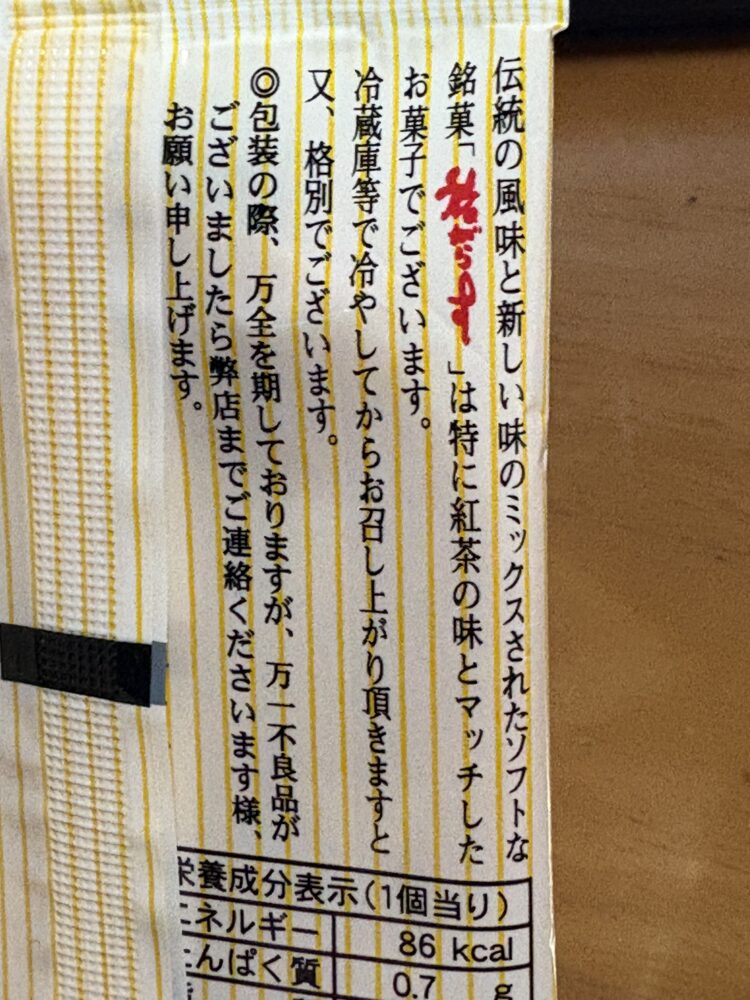 伝統の風味と新しい味のミックスされたソフトな
銘菓「」は特に紅茶の味とマッチした
お菓子でございます。
冷蔵庫等で冷やしてからお召し上がり頂きますと
又、格別でございます。
◎包装の際、万全を期しておりますが、万一不良品が
ございましたら弊店までご連絡くださいます様、
お願い申し上げます。
栄養成分表示(1個当り)
エネルギー 86 kcal
たんぱく質 0.7 g